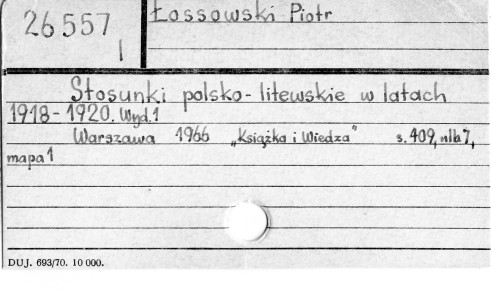 26557
I
Łossowski Piotr
Stosunki polsko-litewskie w latach
1918-1920. Wyd.1
Warszawa 1966 „Książka i Wiedza" s.409, nlb 7,
mapa 1
DUJ. 693/70. 10 000.